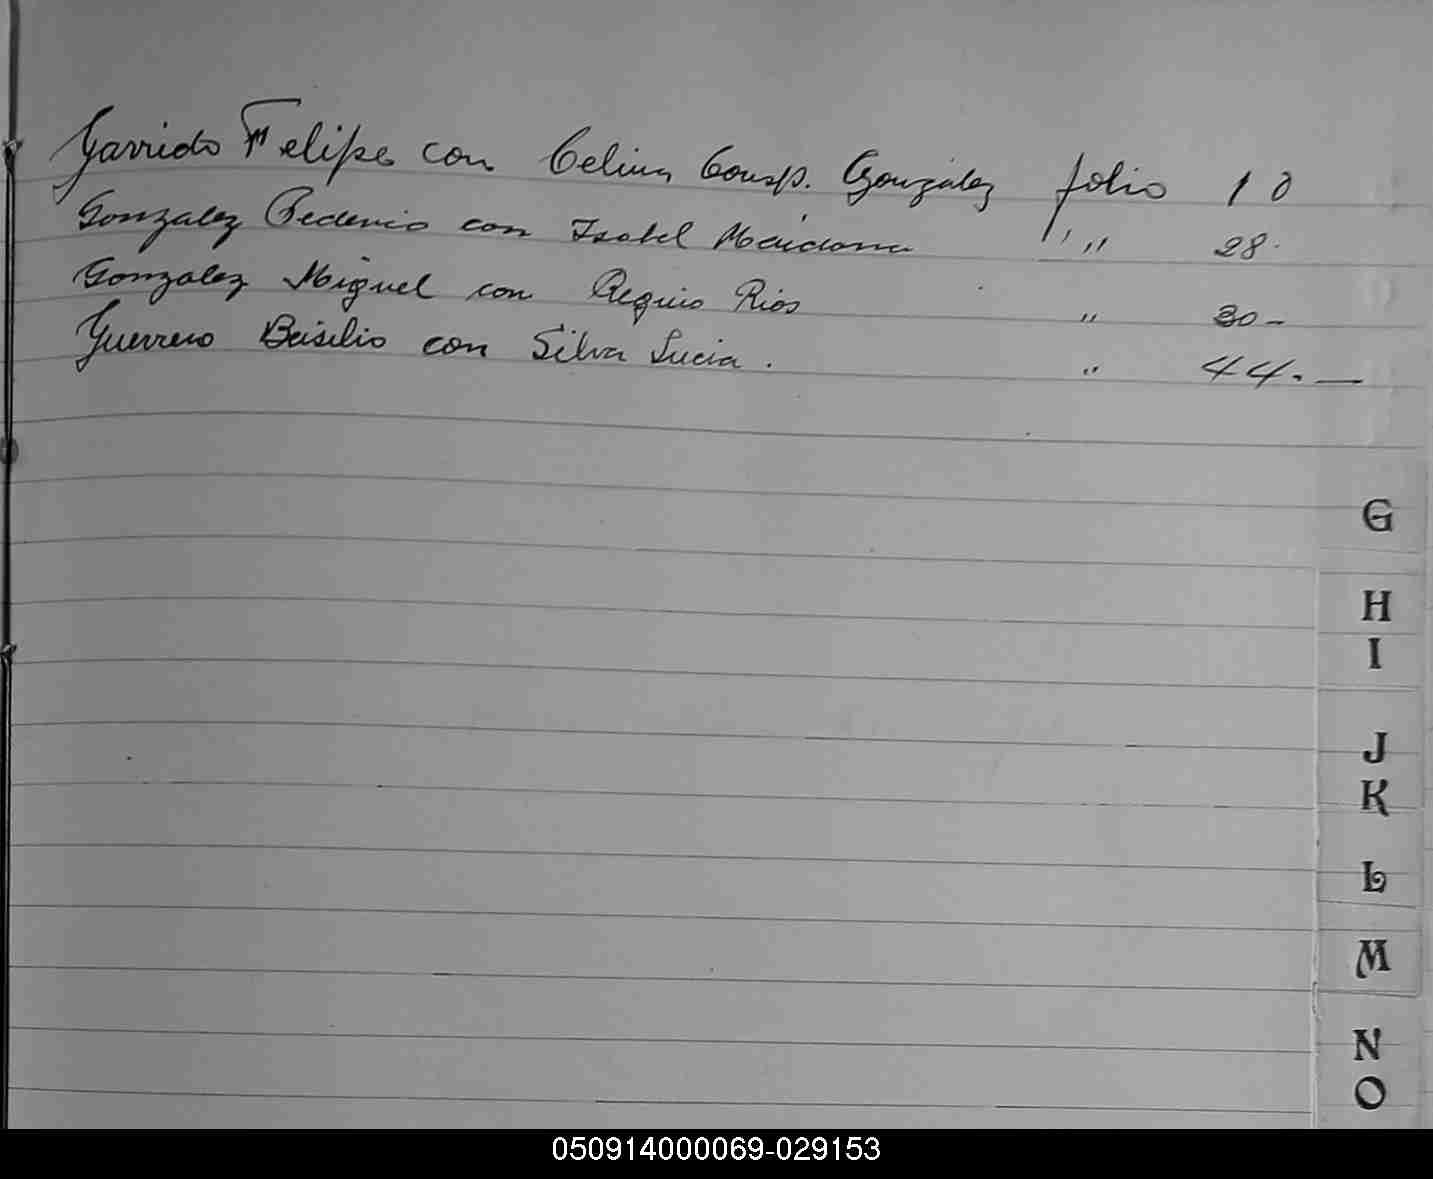 Garrido Felipe con Celina Consp. González folio 10
Gonzalez Federico con Isabel Maidana " " 28.
Gonzalez Miguel con Rios " 30-
Guerrero Basilio con Silva Lucia. " 44.—
G
H
I
J
K
L
M
N
O
050914000069-029153